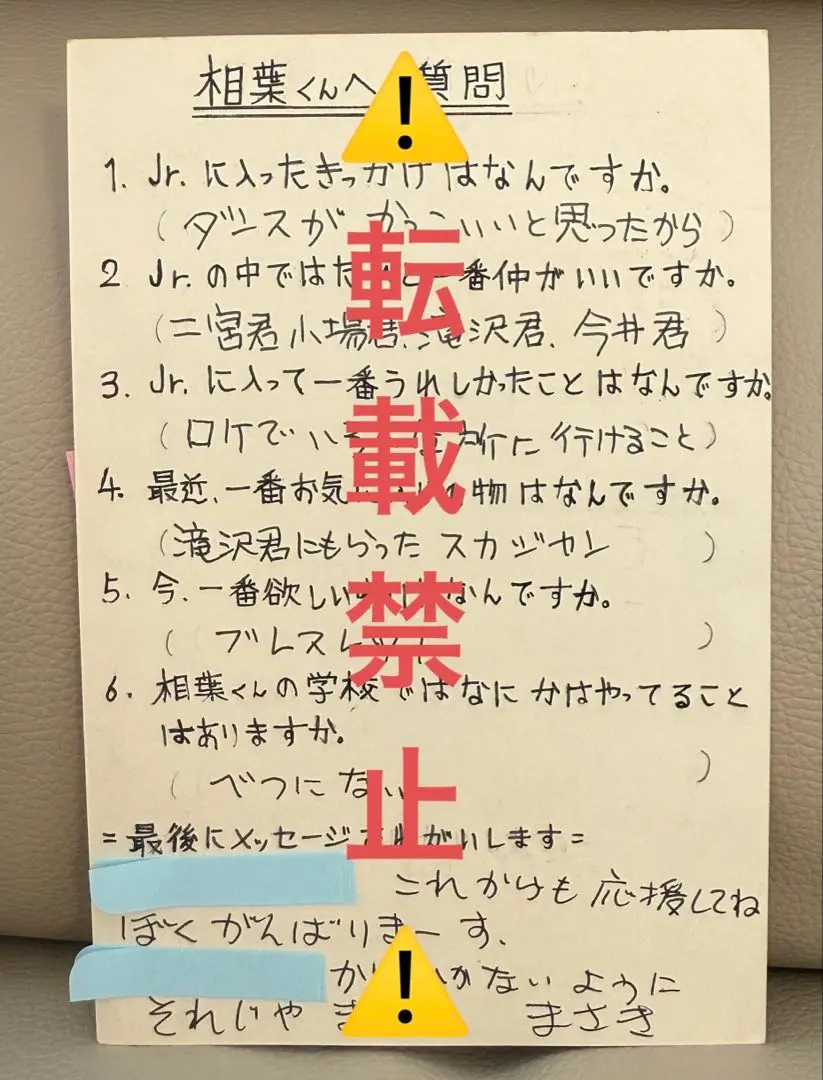 相葉くんへ 質問
1. Jr.に入ったきっかけはなんですか。
(ダンスがかっこいいと思ったから)
2 Jr.の中ではだれと一番仲がいいですか。
(二宮君 小場君、滝沢君、今井君)
3. Jr.に入って一番うれしかったことはなんですか。
(ロケでいろ 所に行けること)
4. 最近、一番お気に 物はなんですか。
(滝沢君にもらった スカジャン)
5. 今、一番欲しい なんですか。
(ブレスレット)
6. 相葉くんの学校ではなにかはやってること
はありますか。
(べつにない)
=最後にメッセージおねがいします=
これからも応援してね
ぼくがんばりまーす、
ないように
それじゃ まさき
転載禁止